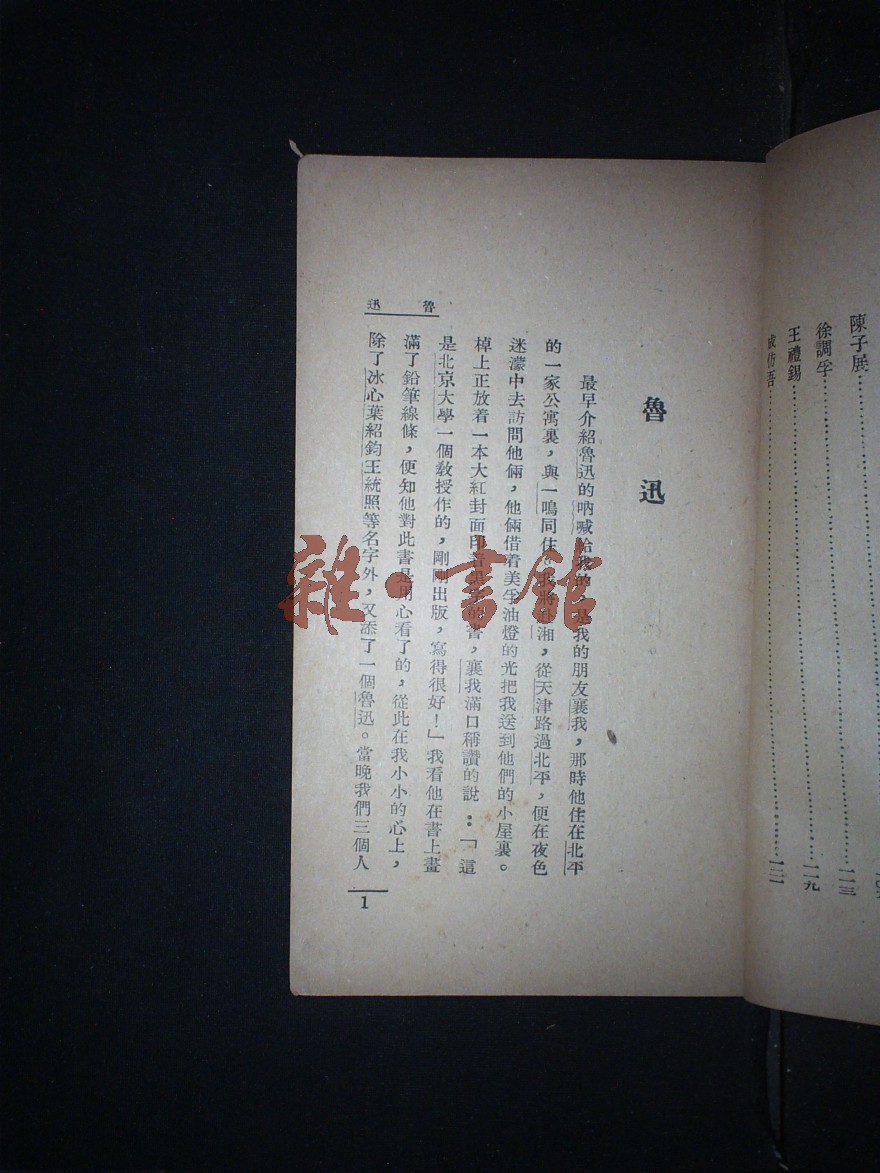 陳子展……一一三
徐調孚……一一九
王禮錫……
成仿吾……一二一
魯迅
最早介紹魯迅的吶喊給我的，是我的朋友襄我，那時他住在北平
的一家公寓裏，與一鳴同住。我將 湘，從天津路過北平，便在夜色
迷濛中去訪問他倆，他倆借着美孚油燈的光把我送到他們的小屋裏。
棹上正放着一本大紅封面印着 的書，襄我滿口稱讚的說：「這
是北京大學一個教授作的，剛剛出版，寫得很好！」我看他在書上畫
滿了鉛筆線條，便知他對此書是用心看了的，從此在我小小的心上，
除了冰心葉紹鈞王統照等名字外，又添了一個魯迅。當晚我們三個人
魯迅
1
雜·書館